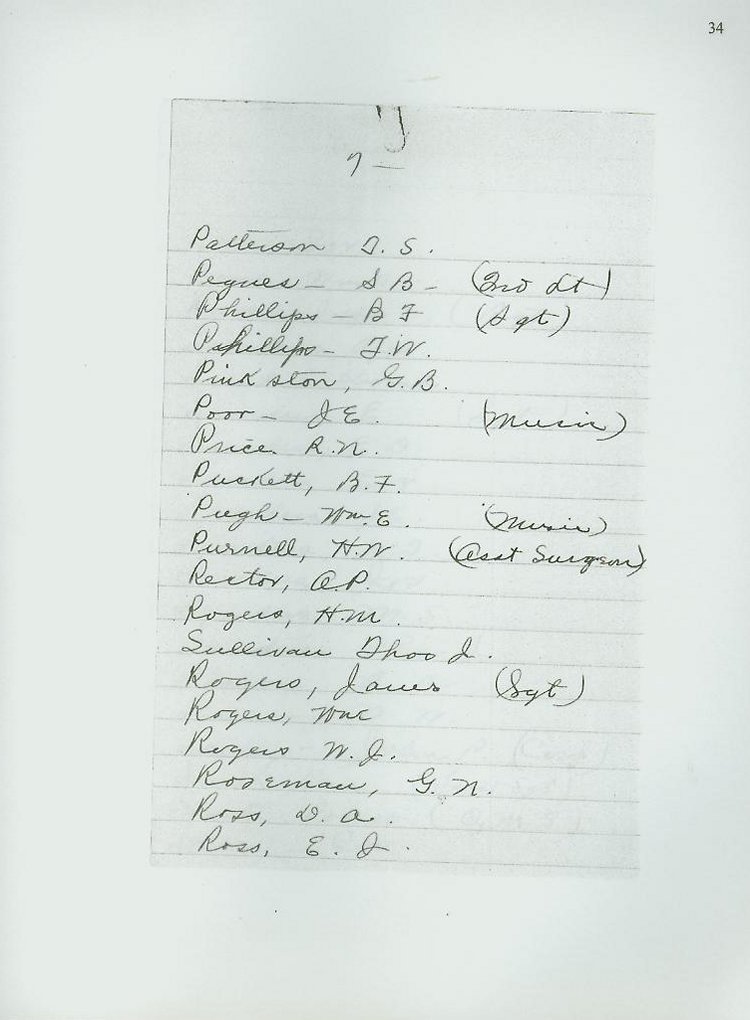 34
7 —
Patterson D. S.
Pegues — S B — (2nd Lt)
Phillips — B F (Sgt)
Phillips — F. W.
Pinkston, G. B.
Poor — J E. (Music)
Price. R. N.
Puckett, B. F.
Pugh — Wm. E. (Music)
Purnell, H. W. (Asst Surgeon)
Rector, A. P.
Rogers, H. M.
Sullivan Thos J.
Rogers, James (Sgt)
Rogers, Wm
Rogers W. J.
Roseman, G. N.
Ross, D. A.
Ross, E. J.